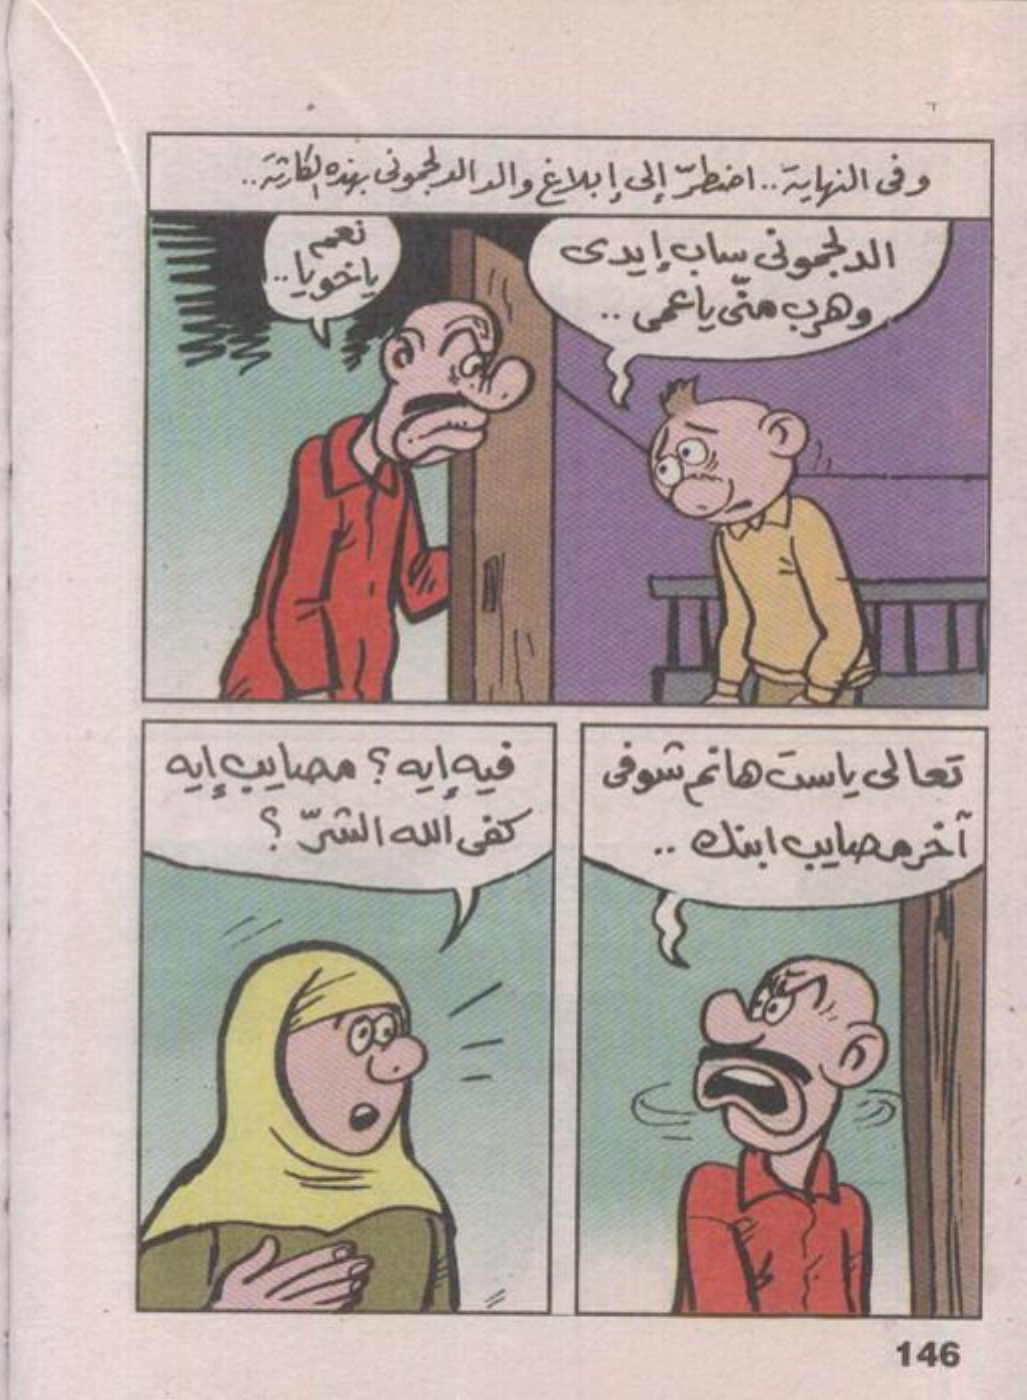 وفى النهاية.. اضطرّ إلى إبلاغ والد الدلجمونى بهذه الكارثة..
الدلجمونى ساب إيدى
وهرب منّى ياعمى ..
نعم
ياخويا..
تعالى ياست هانم شوفى
آخر مصايب ابنك ..
فيه إيه؟ مصايب إيه
كفى الله الشرّ؟
146